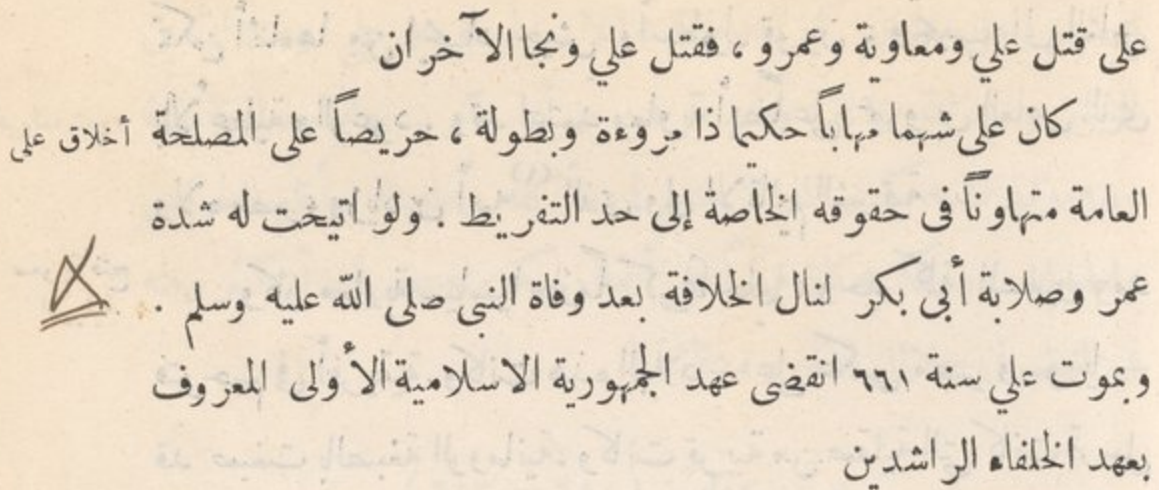 على قتل علي ومعاوية وعمرو ، فقتل علي ونجا الآخران
كان على شهما مهاباً حكيما ذا مروءة وبطولة ، حريصاً على المصلحة
أخلاق على
العامة متهاوناً فى حقوقه الخاصة إلى حد التفريط . ولو اتيحت له شدة
عمر وصلابة أبى بكر لنال الخلافة بعد وفاة النبى صلى الله عليه وسلم .
وبموت علي سنة ٦٦١ انقضى عهد الجمهورية الاسلامية الأولى المعروف
بعهد الخلفاء الراشدين